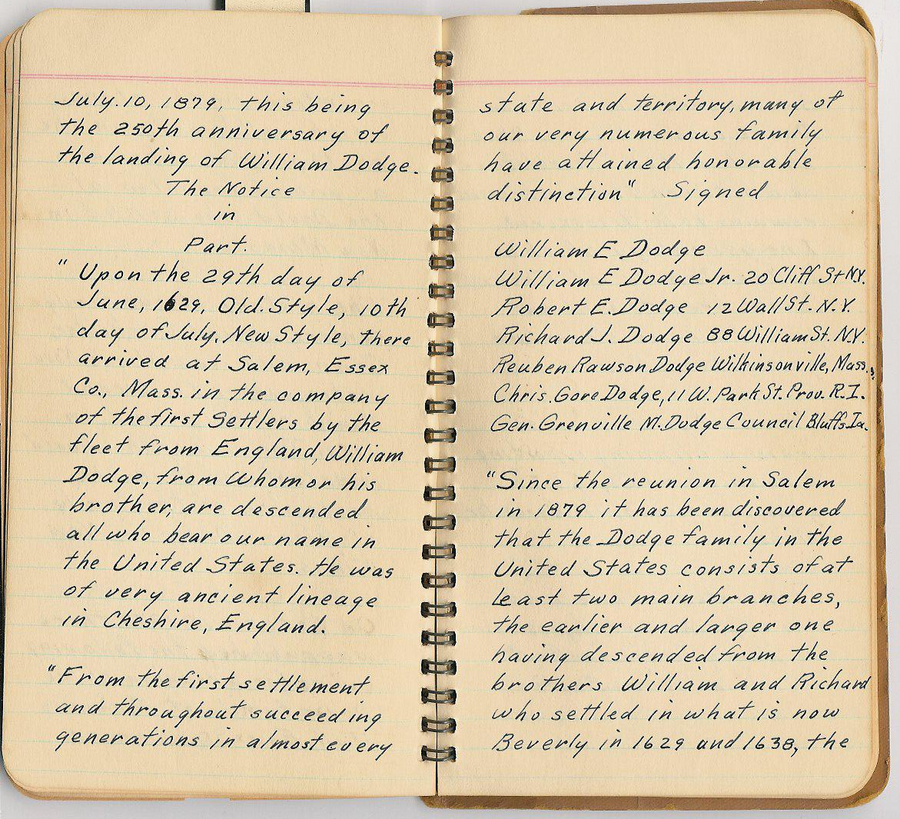 July. 10, 1879, this being
the 250th anniversary of
the landing of William Dodge.
The Notice
in
Part.
" Upon the 29th day of
June, 1629, Old. Style, 10th
day of July. New Style, there
arrived at Salem, Essex
Co., Mass. in the company
of the first Settlers by the
fleet from England, William
Dodge, from Whom or his
brother, are descended
all who bear our name in
the United States. He was
of very ancient lineage
in Cheshire, England.
"From the first settlement
and throughout succeeding
generations in almost every
state and territory, many of
our very numerous family
have attained honorable
distinction" Signed
William E Dodge
William E Dodge Jr. 20 Cliff St N.Y.
Robert E. Dodge 12 Wall St. N.Y.
Richard J. Dodge 88 William St. N.Y.
Reuben Rawson Dodge Wilkinsonville, Mass.
Chris. Gore Dodge, 11 W. Park St. Prov. R.I.
Gen. Grenville M. Dodge Council Bluffs. Ia.
"Since the reunion in Salem
in 1879 it has been discovered
that the Dodge family in the
United States consists of at
least two main branches,
the earlier and larger one
having descended from the
brothers William and Richard
who settled in what is now
Beverly in 1629 and 1638, the